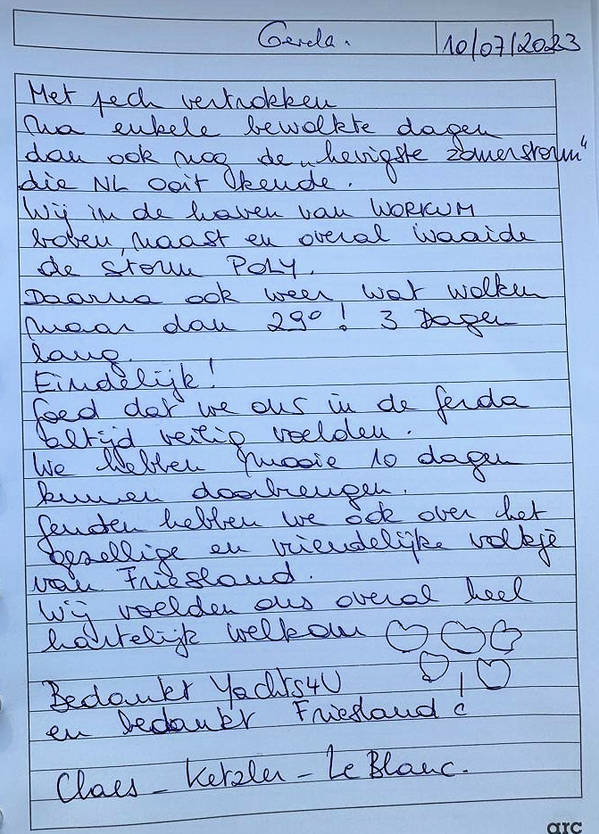 Gerda.
10/07/2023
Met pech vertrokken
Na enkele bewolkte dagen
dan ook nog de „hevigste zomerstorm"
die NL ooit kende.
Wij in de haven van WORKUM
boven, naast en overal waaide
de storm POLY.
Daarna ook weer wat wolken
maar dan 29°! 3 Dagen
lang.
Eindelijk!
Goed dat we ons in de Gerda
altijd veilig voelden.
We hebben mooie 10 dagen
kunnen doorbrengen.
hebben we ook over het
gezellige en vriendelijke volkje
van Friesland.
Wij voelden ons overal heel
hartelijk welkom
Bedankt Yachts4U
en bedankt Friesland !
Claes - Ketzler - Le Blanc.
arc